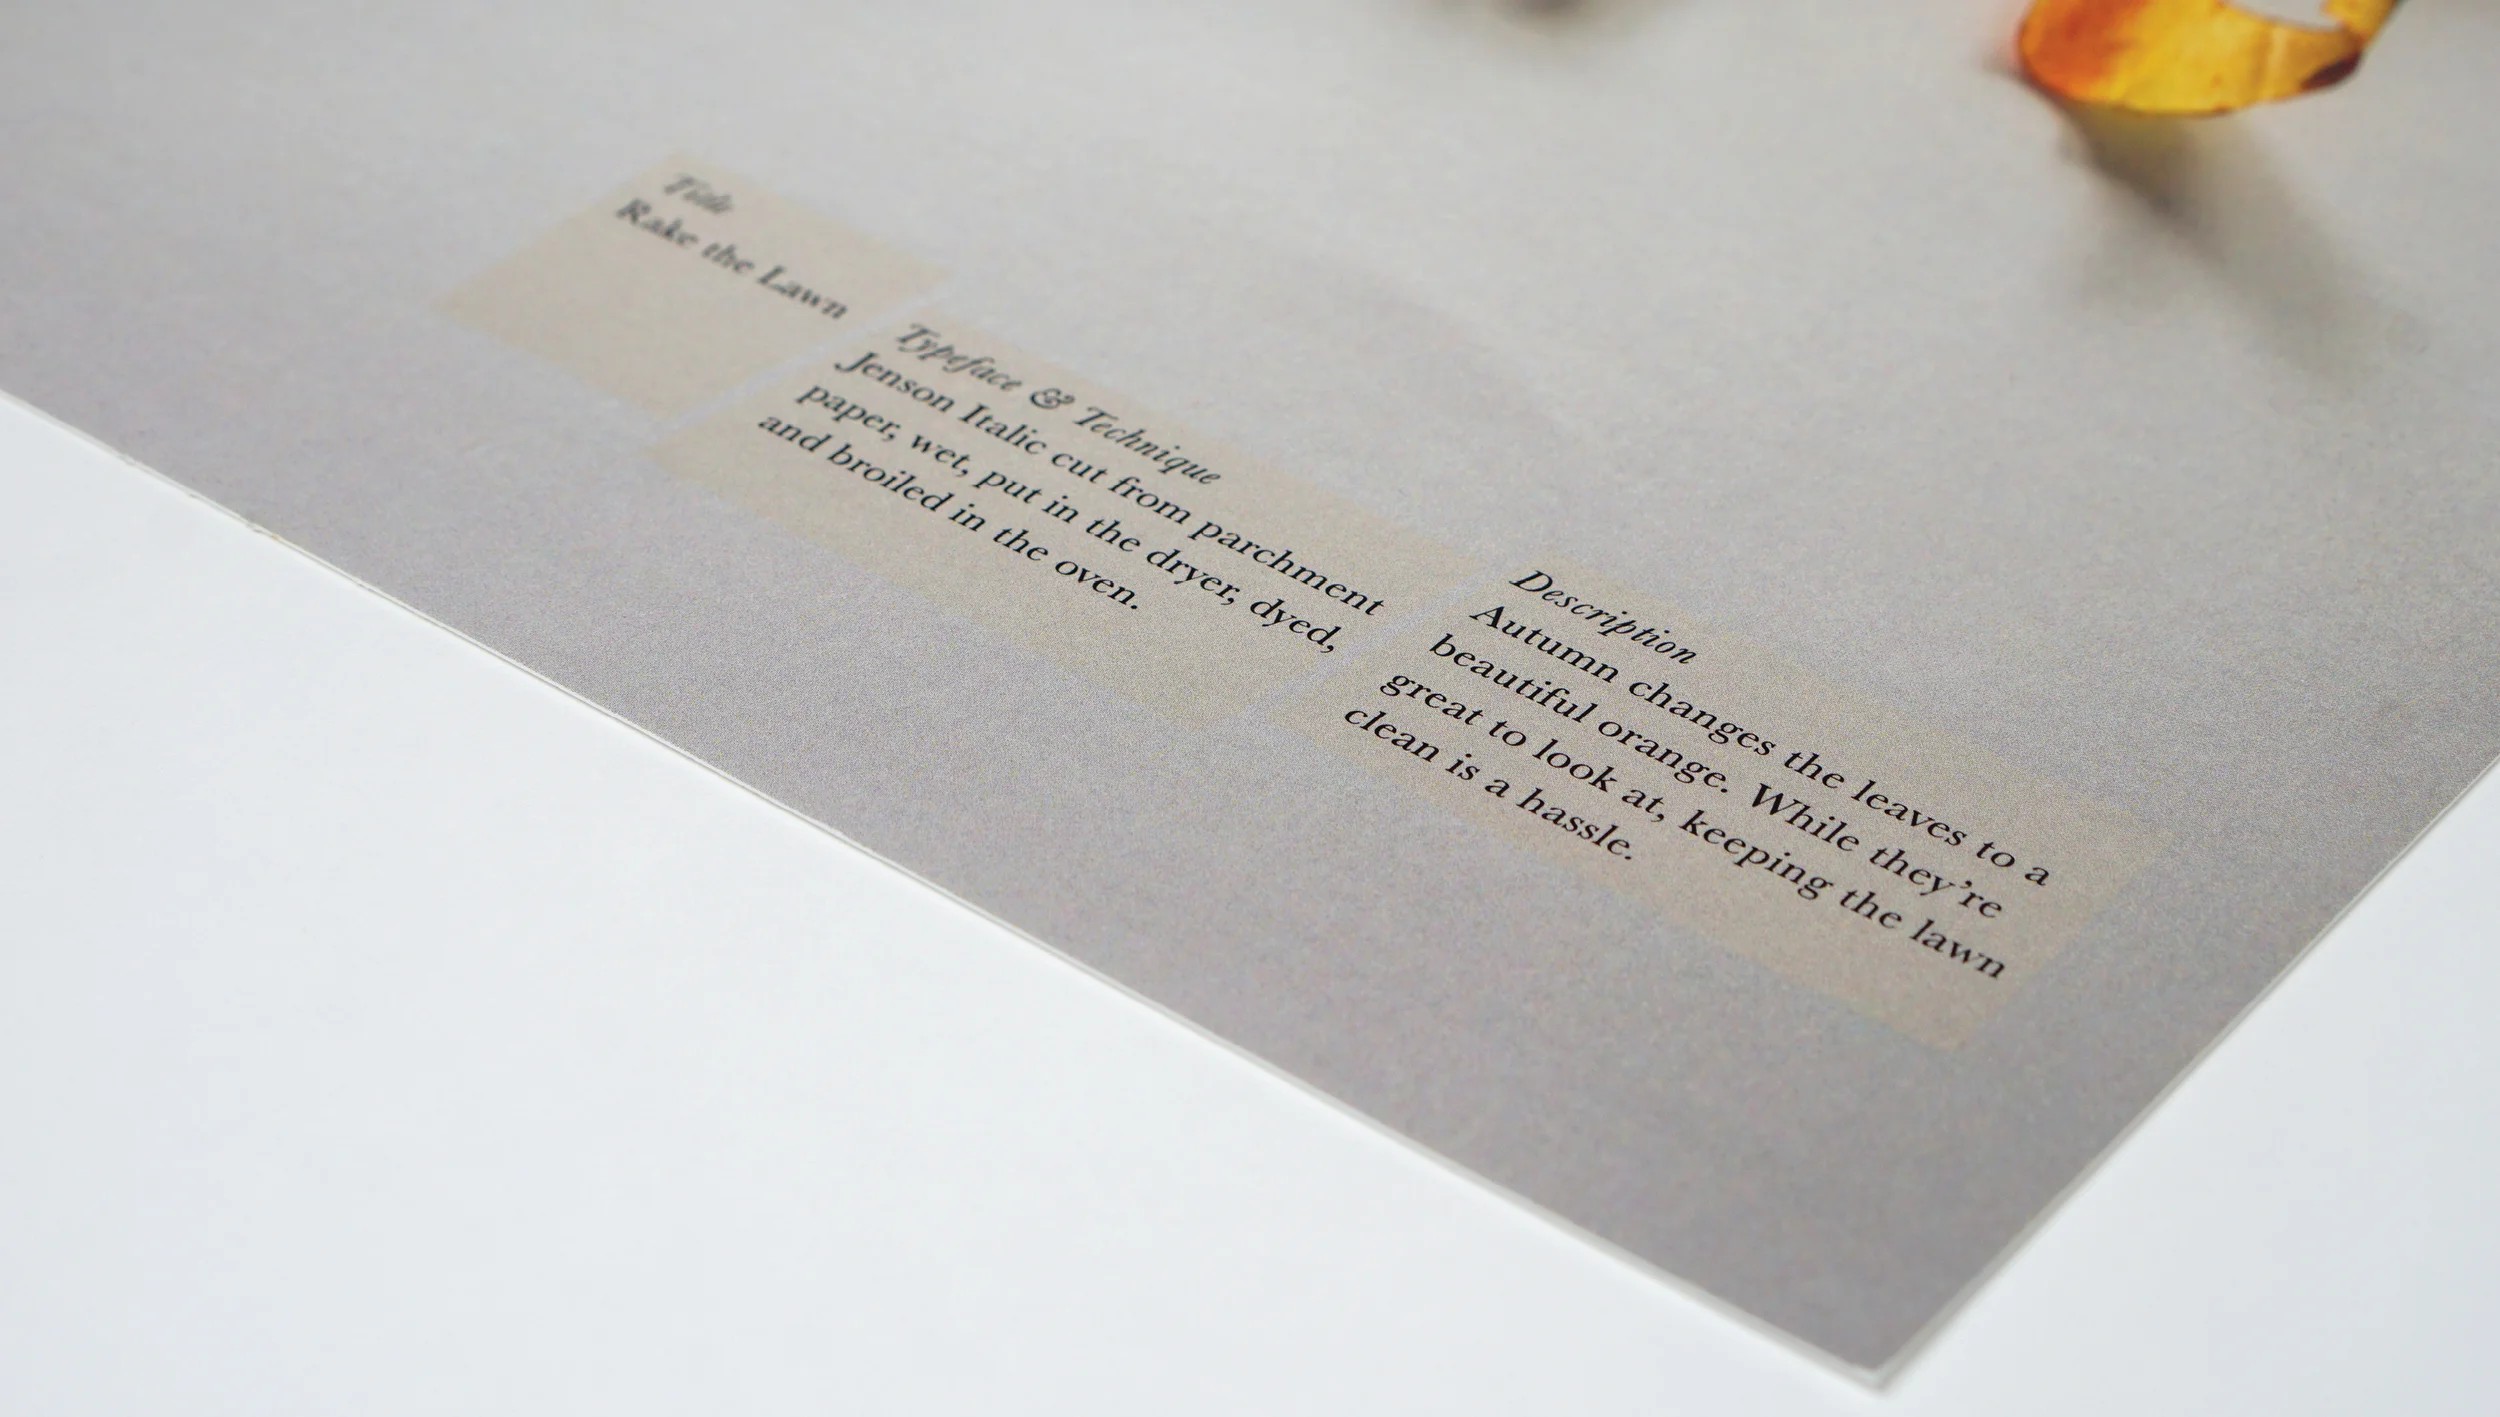 Title
Rake the Lawn
Typeface & Technique
Jenson Italic cut from parchment
paper, wet, put in the dryer, dyed,
and broiled in the oven.
Description
Autumn changes the leaves to a
beautiful orange. While they’re
great to look at, keeping the lawn
clean is a hassle.